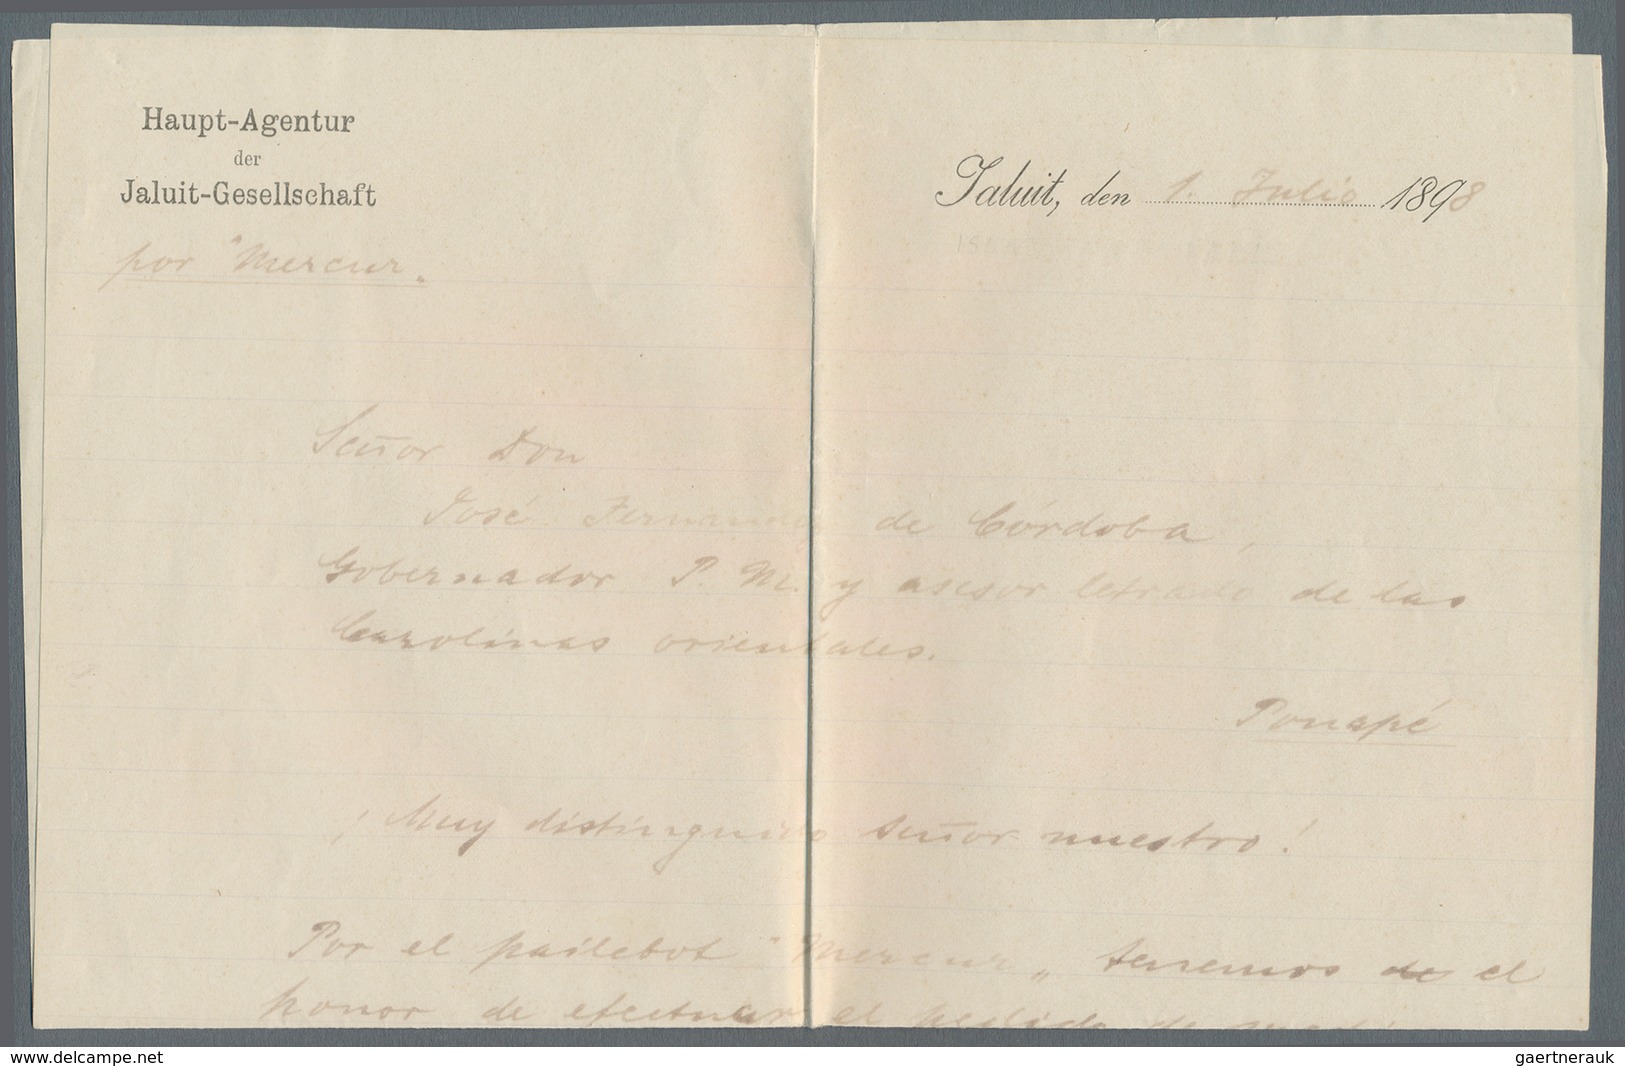 Haupt-Agentur
der
Jaluit-Gesellschaft
Jaluit, den 1. Julio 1898
por "Mercur"
Señor Don
José Fernandez de Córdoba,
Gobernador P. M. y asesor letrado de las
Carolinas orientales.
Ponapé
¡Muy distinguido señor nuestro!
Por el pailebot "Mercur" tenemos de el
honor de efectuar el pedido de
delcampe.net
gaertnerauk